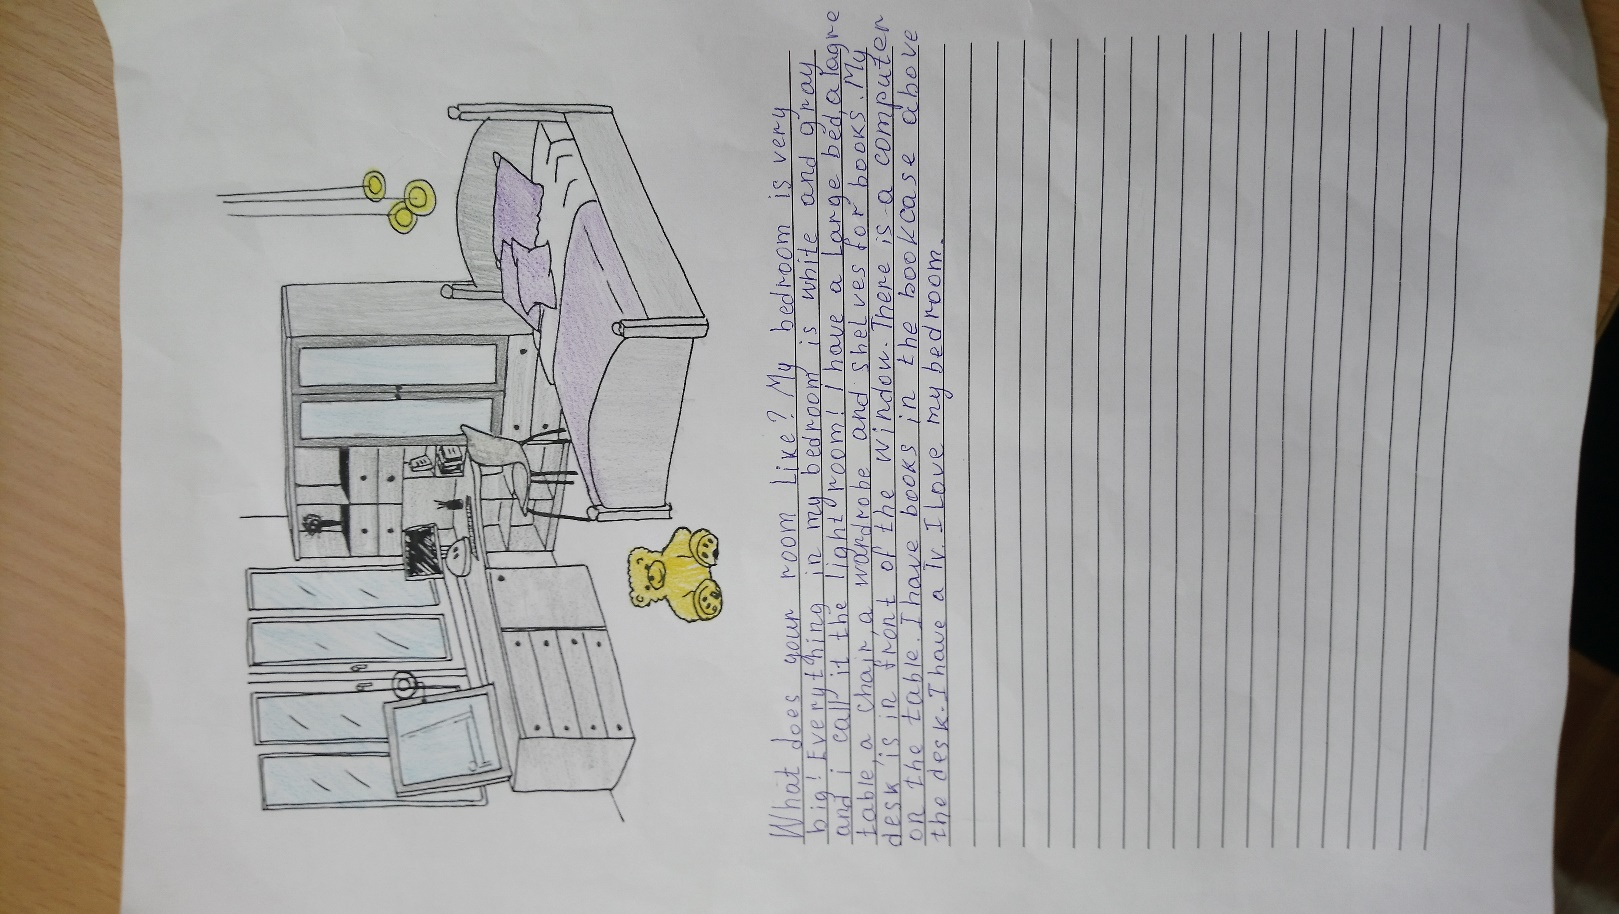 What does your room like? My bedroom is very
big! Everything in my bedroom is white and gray
and i call it the light room! I have a large bed, a lagre
table, a chair, a wardrobe and shelves for books. My
desk is in front of the window. There is a computer
on the table. I have books in the bookcase above
the desk. I have a Tv. I Love my bedroom.